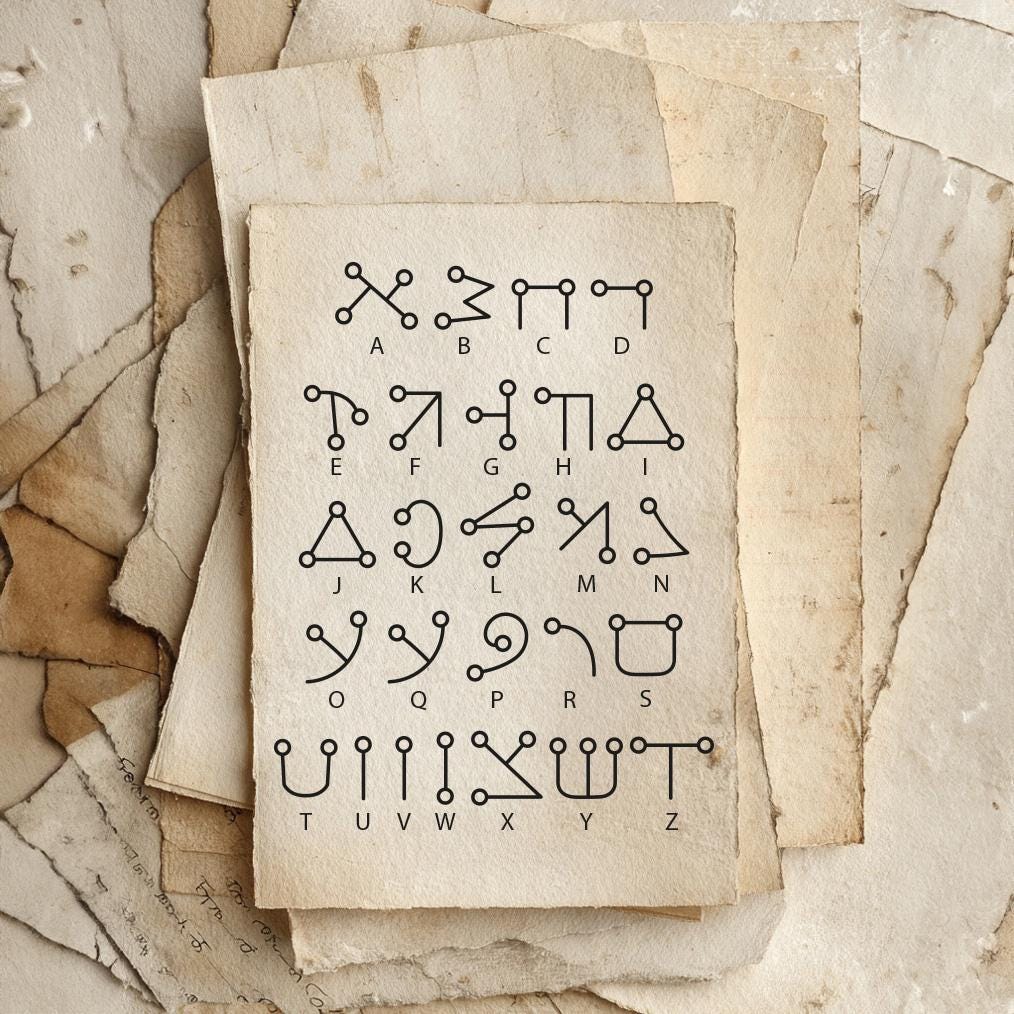 A B C D
E F G H I
J K L M N
O Q P R S
T U V W X Y Z